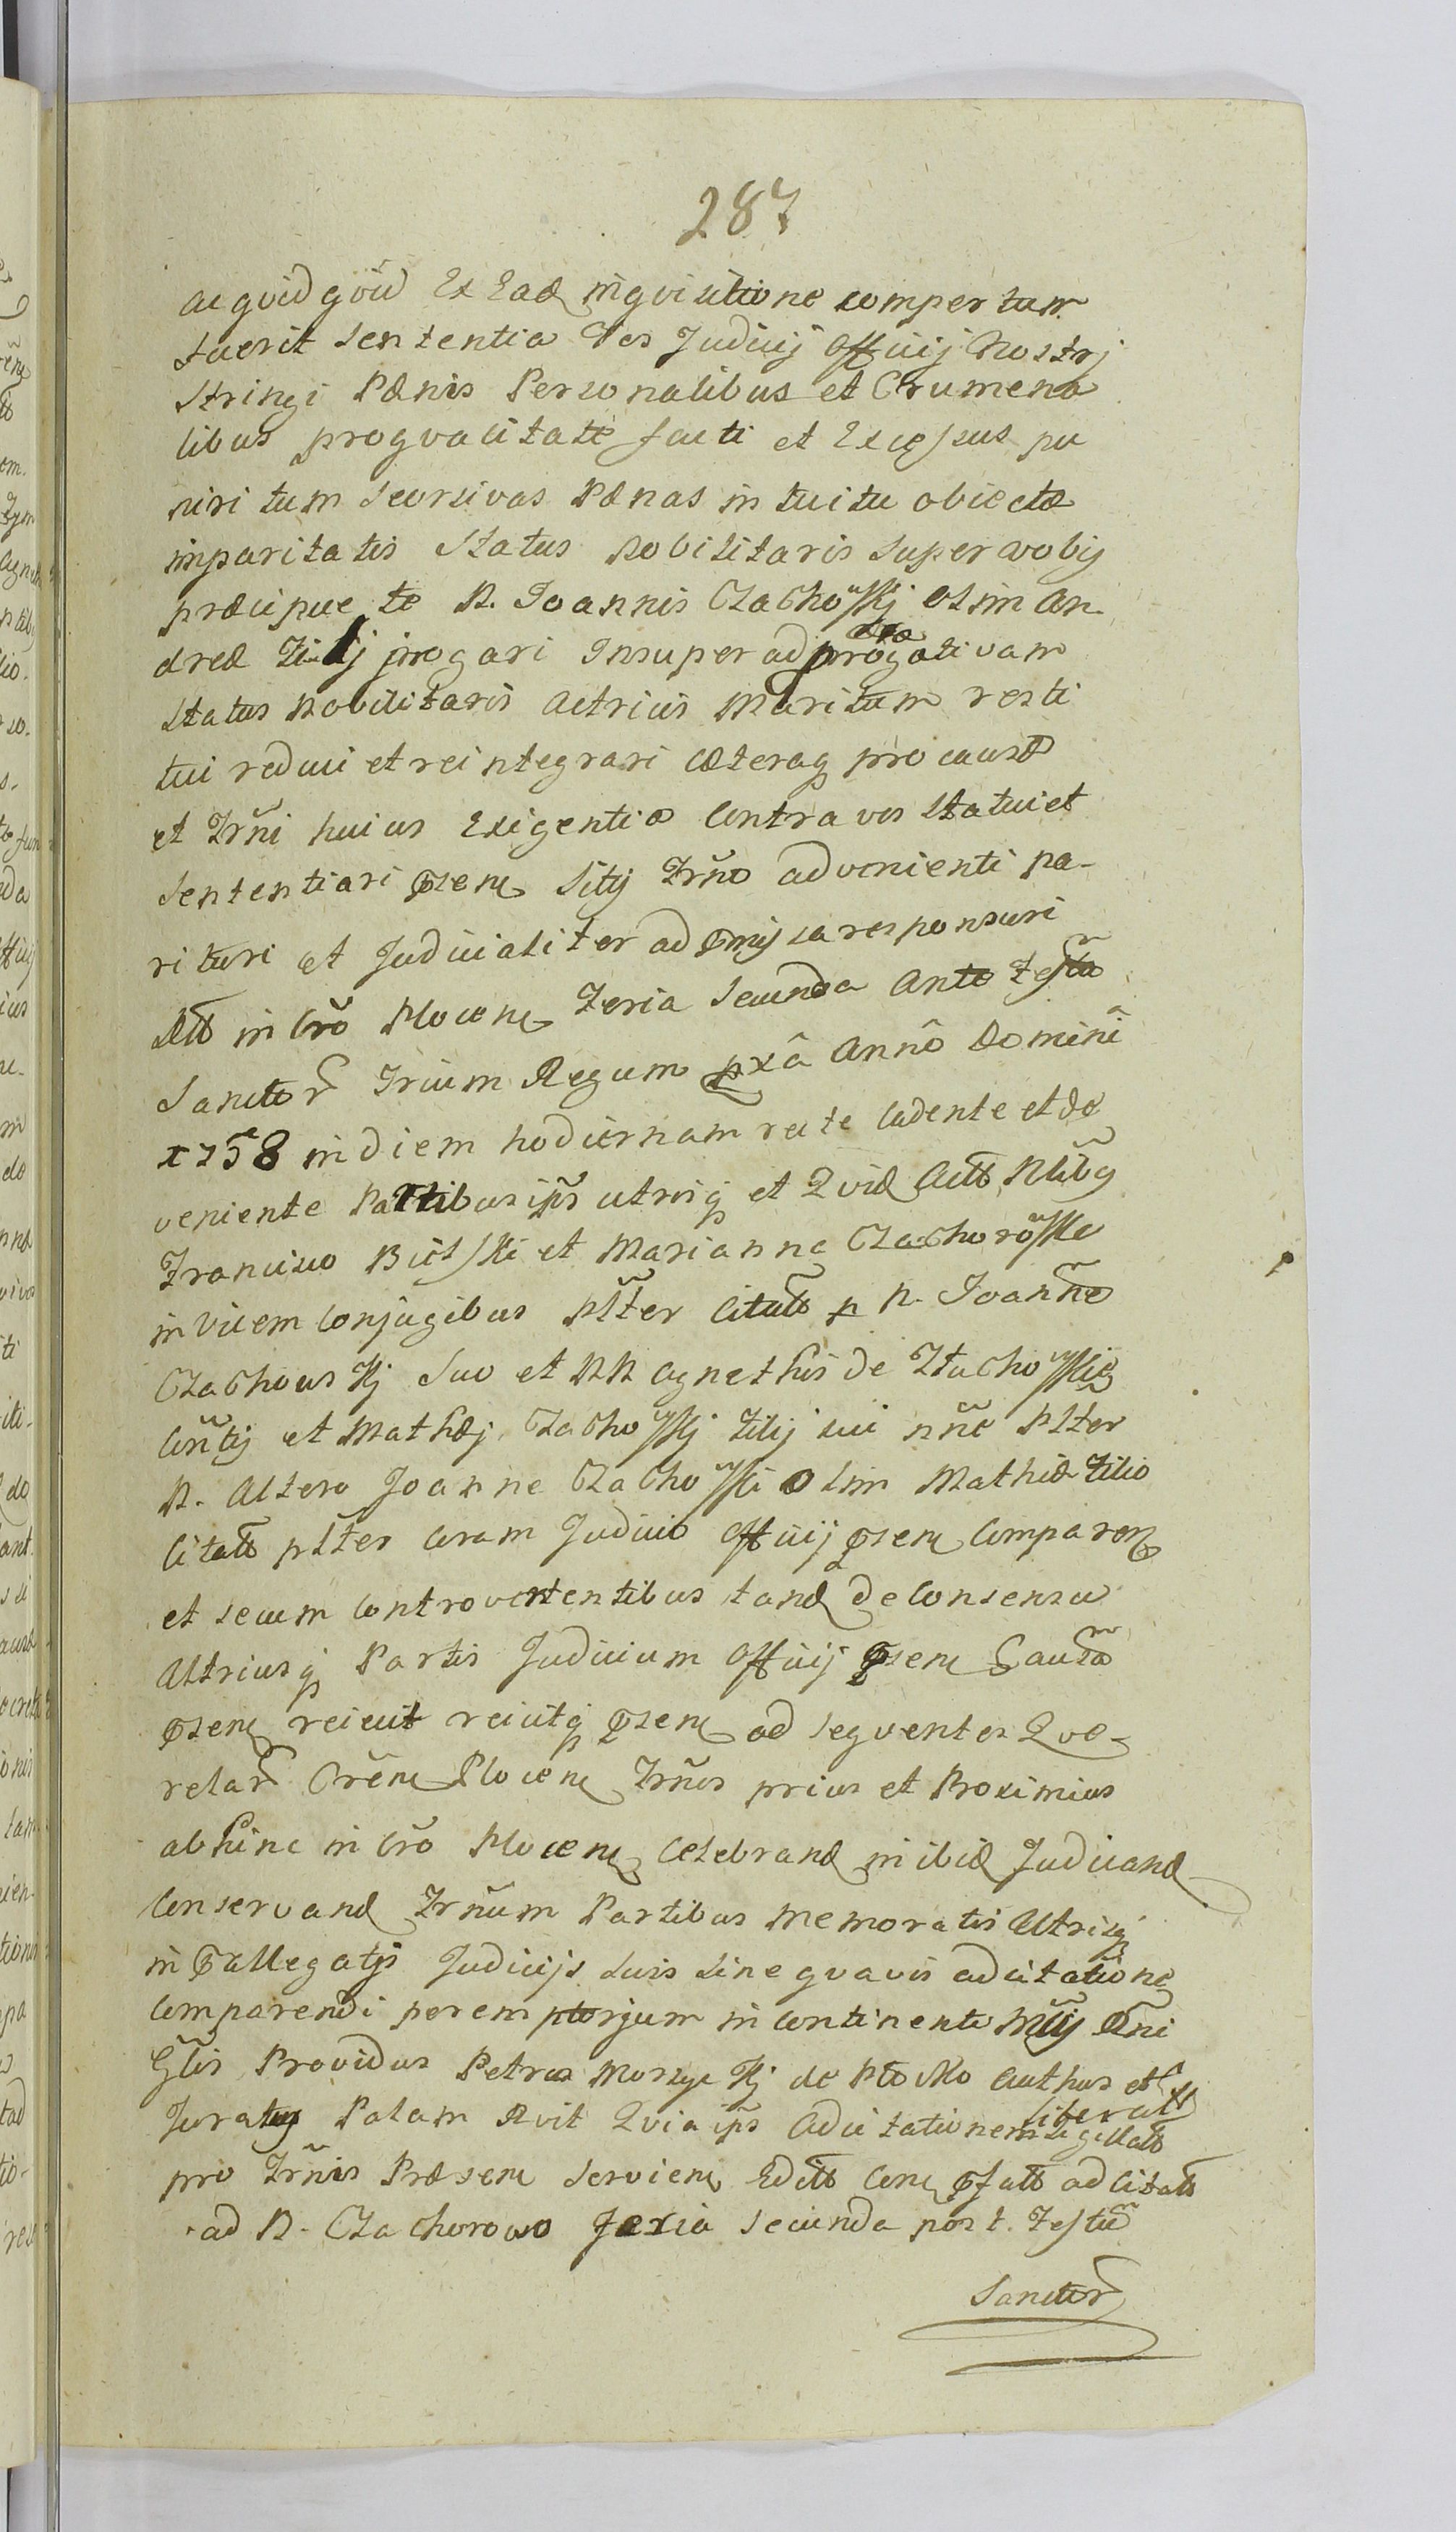 287
ac qvid qvid Ex Ead inqvisitione compertum
fuerit sententia Vos Judicij Officij Nostrj
stringi Pænis Personalibus et Crumena
libus proqvalitate facti et Excessus pu
niri tum seorsivas Pænas in tuitu obiectæ
imparitatis Status Nobilitaris super vobis
præcipue te N. Joannis Czachowskj olim An
dreæ Filij irrogari Insuper ad prærogativam
status Nobilitaris Actricis Maritum resti
tui reduci et reintegrari cæteraq pro causæ
et Trni huius Exigentia Contra vos Statui et
Sententiari Psen Sitis Trno advenienti pa-
rituri et Judicialiter ad Pmissa responsuri
Dtt in Cro Plocen Feria Secunda Ante Festu
Sanctor Trium Regum pxa Anno Domini
1758 in diem hodiernam recte cadente et de
veniente Partibus ips utrisq et Qvid Actt Nlibg
Francisco Bielski et Marianna Czachorowske
in vicem Conjugibus Plter Citatt p N. Joanne
Czachowskj Suo et NN Agnethis de Czachowskie
Contis et Mathæj Czachowskj Filij sui nne Plter
N. Altero Joanne Czachowski olim Mathiæ Filio
Citatt plter Coram Judicio Officij Psen Comparen
et secum Controvertentibus tand de Consensu
Utriusq Partis Judicium Officij Psen Causam
Psen reiecit reicitq Psen ad seqventes Qve-
relar Cren Plocen Trnos prius et Proximius
abhinc in Cro Plocen Celebrand in ibid Judicand
Conservand Trnum Partibus Memoratis Utrisq
in Pallegatis Judicijs suis sine qvavis adcitatione
Comparendi peremptorjum in Continenti Mrij Dni
Glis Providus Petrus Morzyckj de Plocko Authus et
Juratus Palam Rvit Qvia ips Adcitationem literall sigillatt
pro Trnis Præsen Servien Editt Cen Pfatt adcitatt
ad N. Czachorowo Feria Secunda post Festu
Sanctor